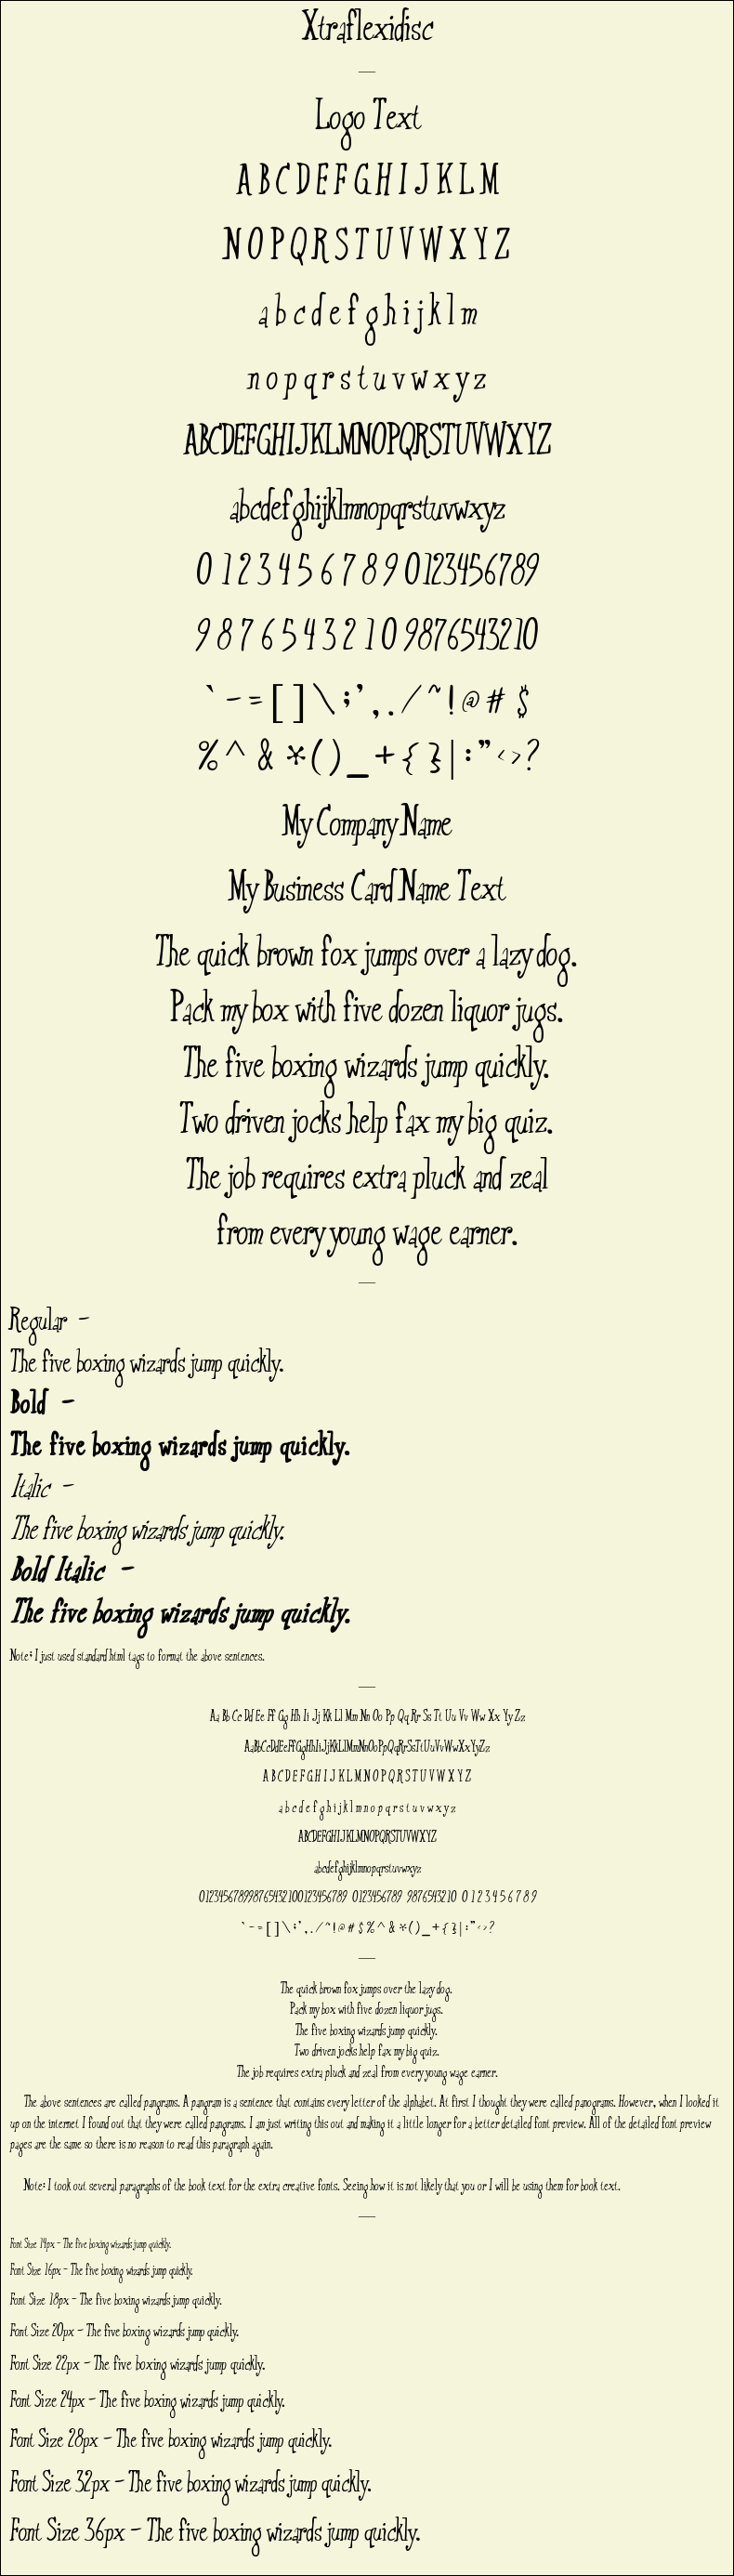 Xtraflexidisc
Logo Text
A B C D E F G H I J K L M
N O P Q R S T U V W X Y Z
a b c d e f g h i j k l m
n o p q r s t u v w x y z
ABCDEFGHIJKLMNOPQRSTUVWXYZ
abcdefghijklmnopqrstuvwxyz
0 1 2 3 4 5 6 7 8 9 0123456789
9 8 7 6 5 4 3 2 1 0 9876543210
` - = [ ] \ ; ' , . / ~ ! @ # $
% ^ & * ( ) _ + { } | : " < > ?
My Company Name
My Business Card Name Text
The quick brown fox jumps over a lazy dog.
Pack my box with five dozen liquor jugs.
The five boxing wizards jump quickly.
Two driven jocks help fax my big quiz.
The job requires extra pluck and zeal
from every young wage earner.
Regular -
The five boxing wizards jump quickly.
Bold -
The five boxing wizards jump quickly.
Italic -
The five boxing wizards jump quickly.
Bold Italic -
The five boxing wizards jump quickly.
Note; I just used standard html tags to format the above sentences.
Aa Bb Cc Dd Ee Ff Gg Hh Ii Jj Kk Ll Mm Nn Oo Pp Qq Rr Ss Tt Uu Vv Ww Xx Yy Zz
AaBbCcDdEeFfGgHhIiJjKkLlMmNnOoPpQqRrSsTtUuVvWwXxYyZz
A B C D E F G H I J K L M N O P Q R S T U V W X Y Z
a b c d e f g h i j k l m n o p q r s t u v w x y z
ABCDEFGHIJKLMNOPQRSTUVWXYZ
abcdefghijklmnopqrstuvwxyz
012345678998765432100123456789 0123456789 9876543210 0 1 2 3 4 5 6 7 8 9
` - = [ ] \ ; ' , . / ~ ! @ # $ % ^ & * ( ) _ + { } | : " < > ?
The quick brown fox jumps over the lazy dog.
Pack my box with five dozen liquor jugs.
The five boxing wizards jump quickly.
Two driven jocks help fax my big quiz.
The job requires extra pluck and zeal from every young wage earner.
The above sentences are called pangrams. A pangram is a sentence that contains every letter of the alphabet. At first I thought they were called panograms. However, when I looked it
up on the internet I found out that they were called pangrams. I am just writing this out and making it a little longer for a better detailed font preview. All of the detailed font preview
pages are the same so there is no reason to read this paragraph again.
Note: I took out several paragraphs of the book text for the extra creative fonts. Seeing how it is not likely that you or I will be using them for book text.
Font Size 14px - The five boxing wizards jump quickly.
Font Size 16px - The five boxing wizards jump quickly.
Font Size 18px - The five boxing wizards jump quickly.
Font Size 20px - The five boxing wizards jump quickly.
Font Size 22px - The five boxing wizards jump quickly.
Font Size 24px - The five boxing wizards jump quickly.
Font Size 28px - The five boxing wizards jump quickly.
Font Size 32px - The five boxing wizards jump quickly.
Font Size 36px - The five boxing wizards jump quickly.